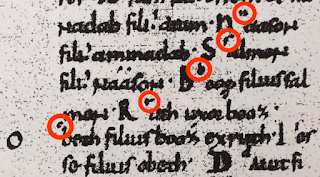 nadab fili' aram N aason
fili' aminadab · S almon
fili' naason B ooz filius sal
mon R uth uxor booz
O beth filius booz ex ruth I es
se filius obeth D auit fi